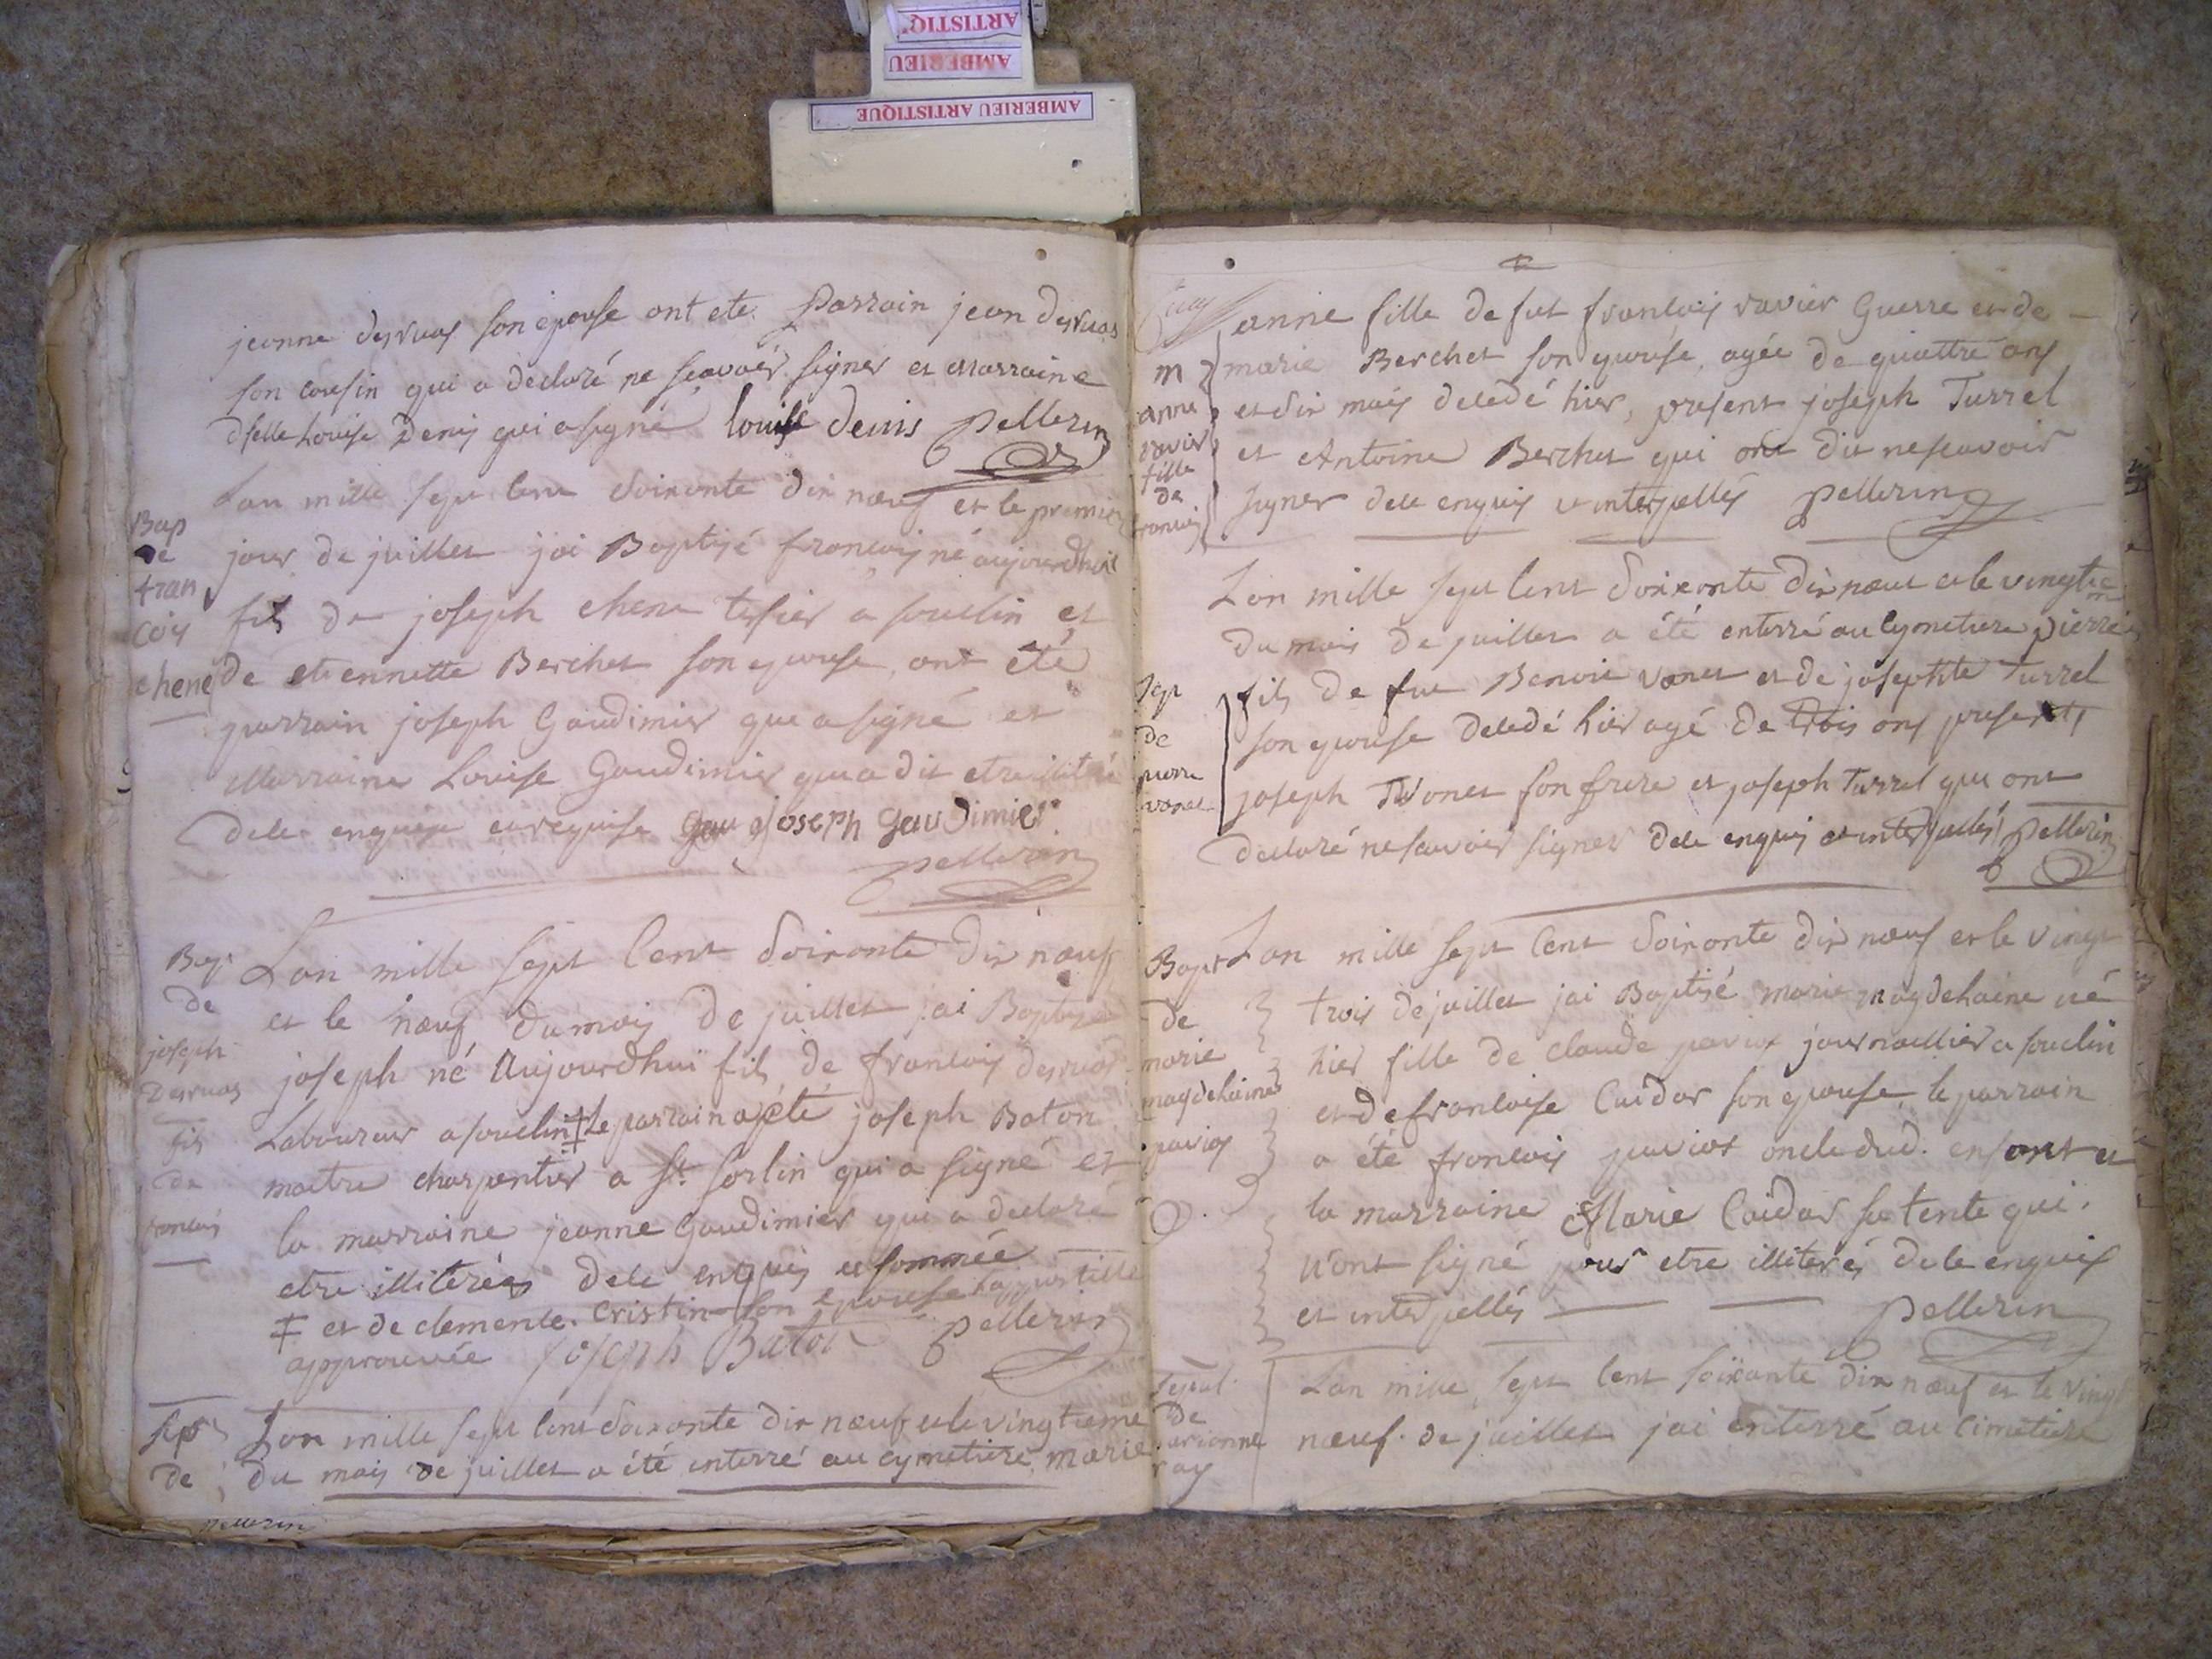 ARTISTIQ
AMBERIEU
AMBERIEU ARTISTIQUE
jeanne desruas son epouse ont ete. Parrain jean desruas
son cousin qui a declaré ne scavoir signer et marraine
dselle Louise Denis qui a signé louise denis Pellerin
Bap
de
fran
coy
chene
Lan mille sept cent soixante dix nœuf et le premier
jour de juillet jai Baptisé francois né aujourdhui
fils de joseph chene tissier a souclin et
de etiennette Berchet son epouse, ont été
parrain joseph Gaudimier qui a signé et
Marraine Louise Gaudimier qui a dit etre
dele enquise et requise joseph gaudimier
pellerin
Bap.
de
joseph
Desruas
fils
de
francois
Lan mille sept Cent soixante dix nœuf
et le nœuf du mois de juillet jai Baptisé
joseph né aujourdhui fils de francois desruas
Laboureur a souclin ‡ Le parrain a été joseph Baton
maitre charpentier a St. Sorlin qui a signé et
la marraine jeanne Gaudimier qui a declaré
etre illiterées dele enquis et sommée
‡ et de clemence Cristin son epouse la postille
approuvée joseph Baton pellerin
Sep
de
Lan mille sept cent soixante dix nœuf et le vingtieme
du mois de juillet a été enterré au cymetiere marie
pellerin
m
anne
ravier
fille
de
francois
anne fille de fut francois ravier Guerre et de
marie Berchet son epouse, agée de quattre ans
et dix mois decedé hier, present joseph Turrel
et Antoine Berchet qui ont dit ne scavoir
signer dele enquis et interpellés pellerin
Sep
de
pierre
vonet
Lan mille sept cent soixante dix nœuf et le vingtieme
du mois de juillet a été enterré au cymetiere pierre
fils de fut Benoit vonet et de josephte Turrel
son epouse decedé hier agé de trois ans presents
joseph vonet son frere et joseph Turrel qui ont
declaré ne scavoir signer dele enquis et interpellés pellerin
Bapt
de
marie
magdelaine
paviot
Lan mille sept Cent soixante dix nœuf et le vingt
trois de juillet jai Baptisé marie magdelaine né
hier fille de claude paviot journaillier a souclin
et de francoise Caidor son epouse, le parrain
a été francois paviot oncle dud. enfant et
la marraine Marie Caidor sa tente qui
n'ont signé pour etre illiterés dele enquis
et interpellés pellerin
sepul.
de
marianne
ray
Lan mille sept cent soixante dix nœuf et le vingt
nœuf de juillet jai enterré au cimetiere